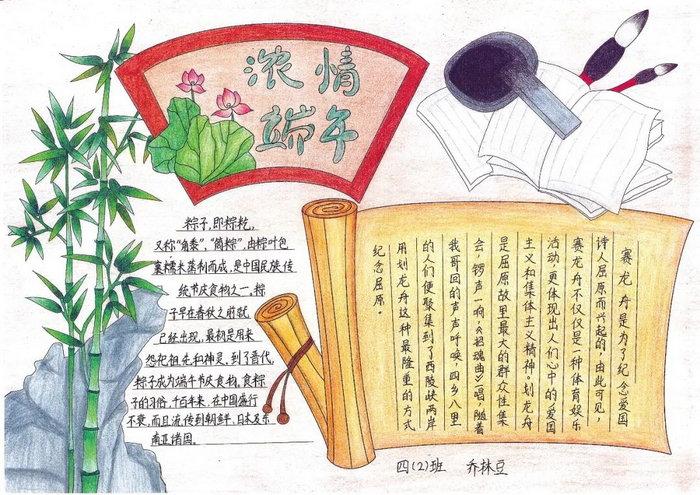 浓情
端午
粽子，即粽籺，
又称“角黍”、“筒粽”，由粽叶包
裹糯米蒸制而成，是中国民族传
统节庆食物之一，粽
子早在春秋之前就
已经出现，最初是用来
祭祀祖先和神灵，到了晋代，
粽子成为端午节庆食物，食粽
子的习俗，千百年来，在中国盛行
不衰，而且流传到朝鲜、日本及东
南亚诸国。
赛龙舟是为了纪念爱国
诗人屈原而兴起的，由此可见，
赛龙舟不仅仅是一种体育娱乐
活动，更体现出人们心中的爱国
主义和集体主义精神，划龙舟
是屈原故里最大的群众性集
会，锣声一响，《招魂曲》唱，随着
我哥回的声声呼唤，四乡八里
的人们便聚集到了西陵峡两岸
用划龙舟这种最隆重的方式
纪念屈原。
四(2)班 乔林豆